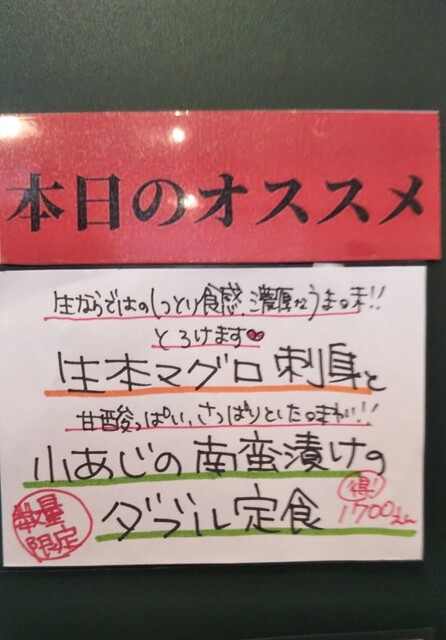 本日のオススメ
生ならではのしっとり食感、濃厚なうま味!!
とろけます♥
生本マグロ刺身と
甘酸っぱい、さっぱりとした味わい!!
小あじの南蛮漬けの
ダブル定食
数量
限定
得!
1700えん